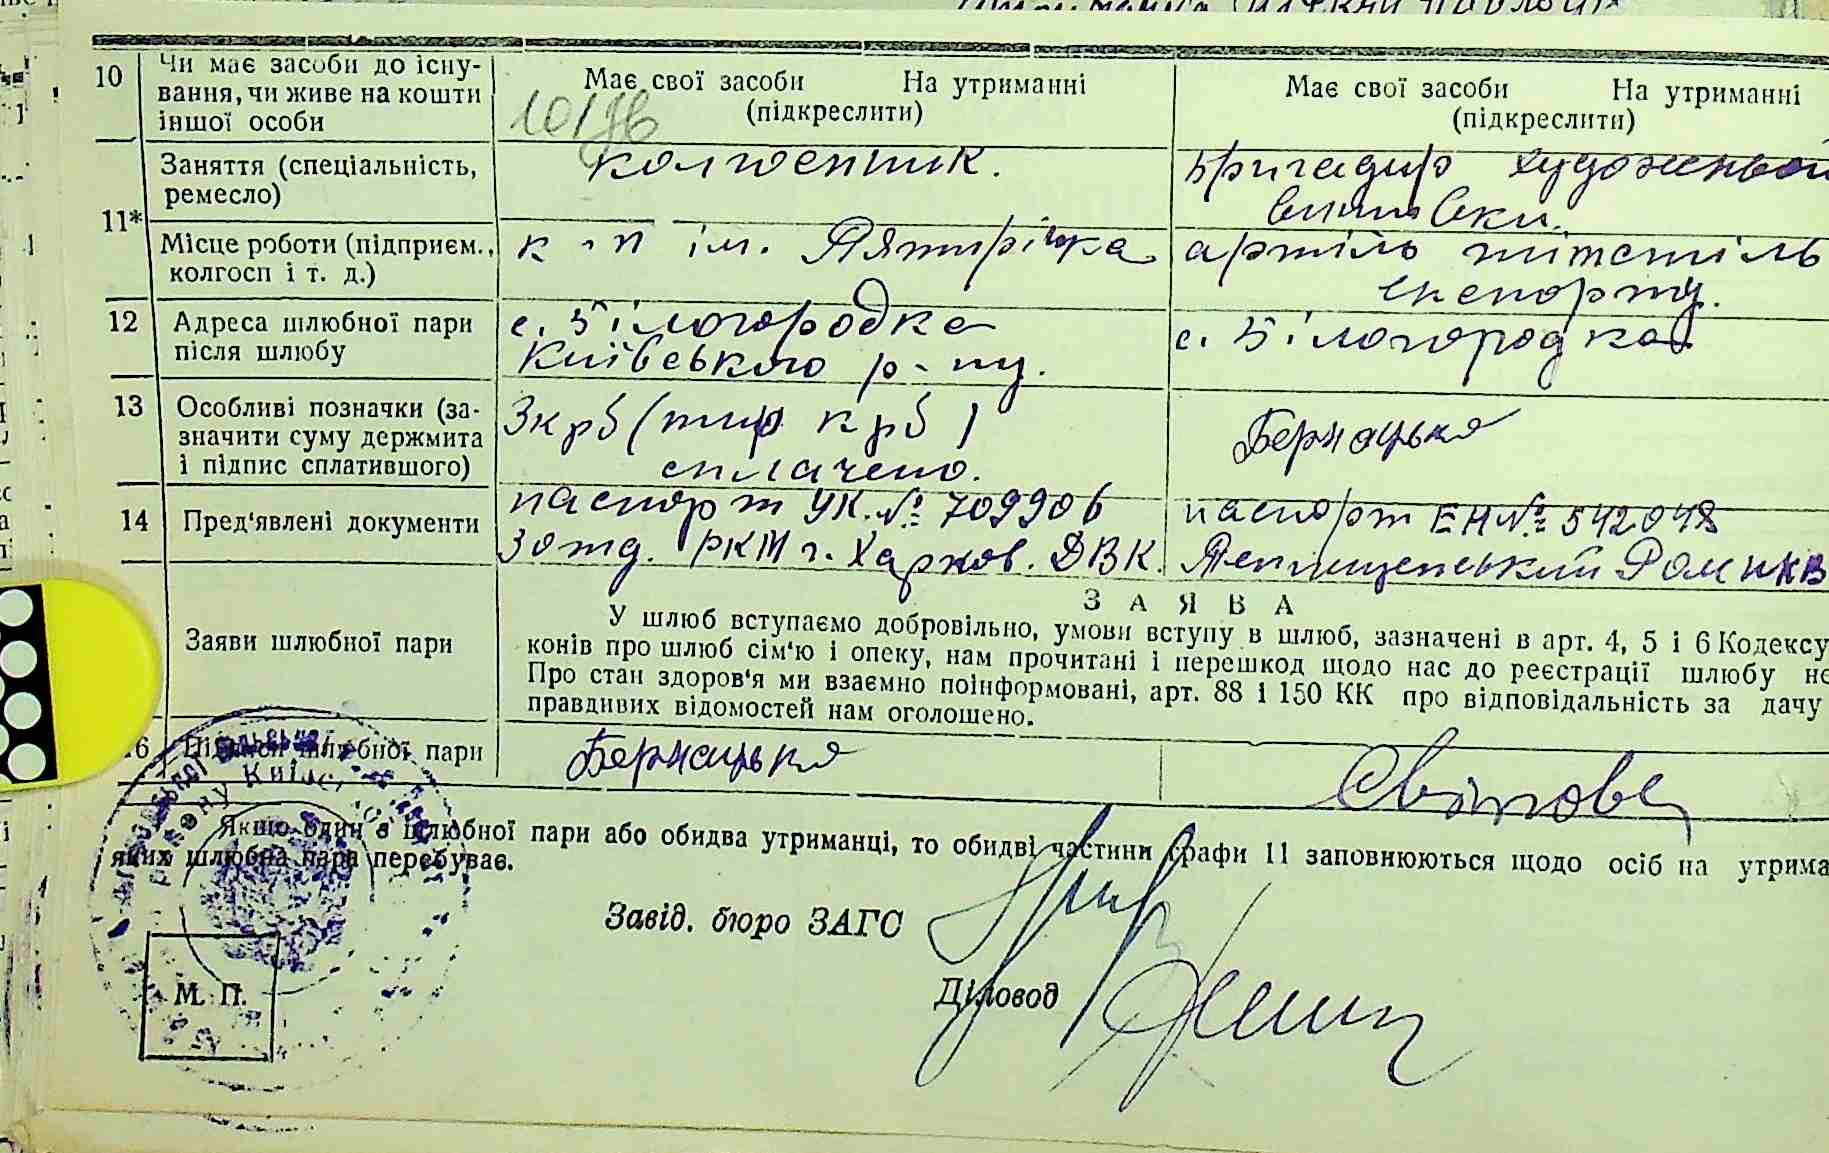 10
Чи має засоби до існу-
вання, чи живе на кошти
іншої особи
Має свої засоби На утриманні
(підкреслити)
Має свої засоби На утриманні
(підкреслити)
11*
Заняття (спеціальність,
ремесло)
колгоспник.
бригадир художньої
вишивки.
Місце роботи (підприєм.,
колгосп і т. д.)
к-п ім. Пятирічка
артіль
експорту.
12
Адреса шлюбної пари
після шлюбу
с. Білогородка
Київського р-ну.
с. Білогородка
13
Особливі позначки (за-
значити суму держмита
і підпис сплатившого)
3крб (три крб)
сплачено.
Бернацька
14
Пред'явлені документи
паспорт УК. № 709906
3 отд. РКМ г. Харков. ДВК.
паспорт ЕН № 542048
НКВ
Заяви шлюбної пари
ЗАЯВА
У шлюб вступаємо добровільно, умови вступу в шлюб, зазначені в арт. 4, 5 і 6 Кодексу
конів про шлюб сім'ю і опеку, нам прочитані і перешкод щодо нас до реєстрації шлюбу не
Про стан здоров'я ми взаємно поінформовані, арт. 88 і 150 КК про відповідальність за дачу
правдивих відомостей нам оголошено.
6 Підписи шлюбної пари
Бернацька
Якщо один з шлюбної пари або обидва утриманці, то обидві частини графи 11 заповнюються щодо осіб на утрима
яких шлюбна пара перебуває.
Завід. бюро ЗАГС
Діловод
М. П.